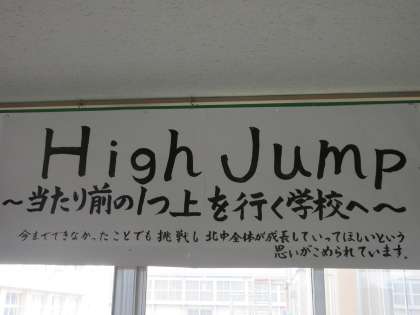 High Jump
～当たり前の1つ上を行く学校へ～
今までできなかったことでも挑戦し北中全体が成長していってほしいという
思いがこめられています。